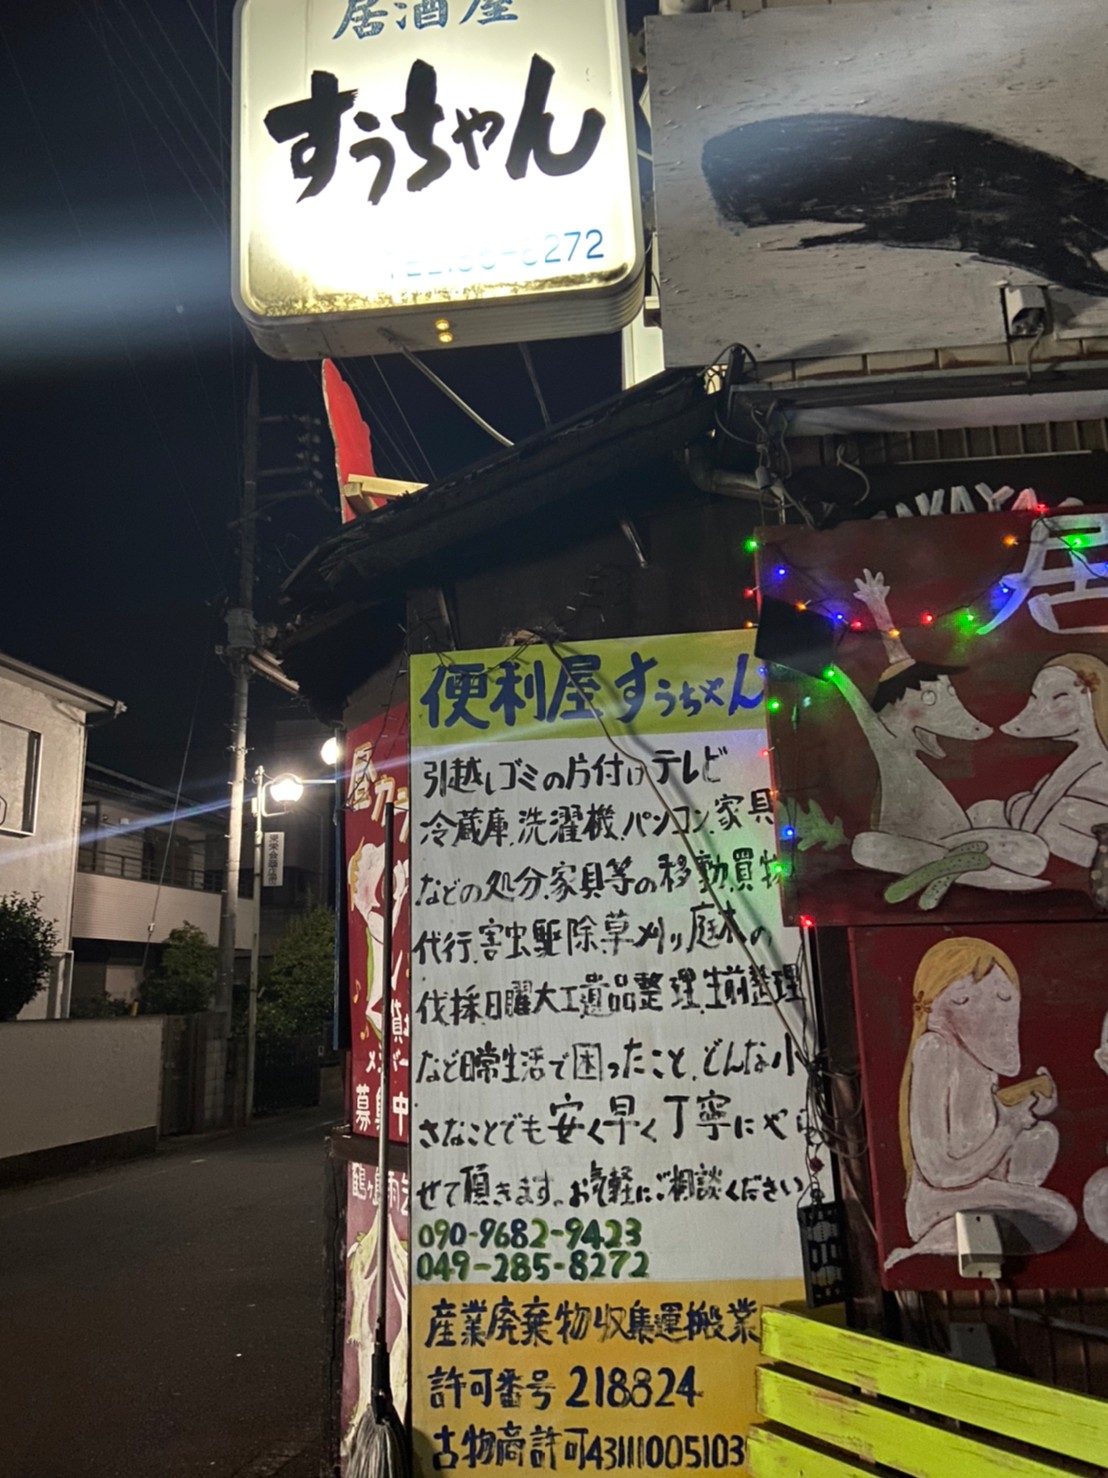 居酒屋
すうちゃん
8272
便利屋すうちゃん
引越しゴミの片付けテレビ
冷蔵庫.洗濯機.パソコン.家具
などの処分.家具等の移動.買物
代行.害虫駆除.草刈り.庭木の
伐採.日曜大工遺品整理生前整理
など日常生活で困ったこと.どんな小
さなことでも安く早く丁寧にやら
せて頂きます。お気軽にご相談ください
090-9682-9423
049-285-8272
産業廃棄物収集運搬業
許可番号 218824
古物商許可431110051039
居
募集中